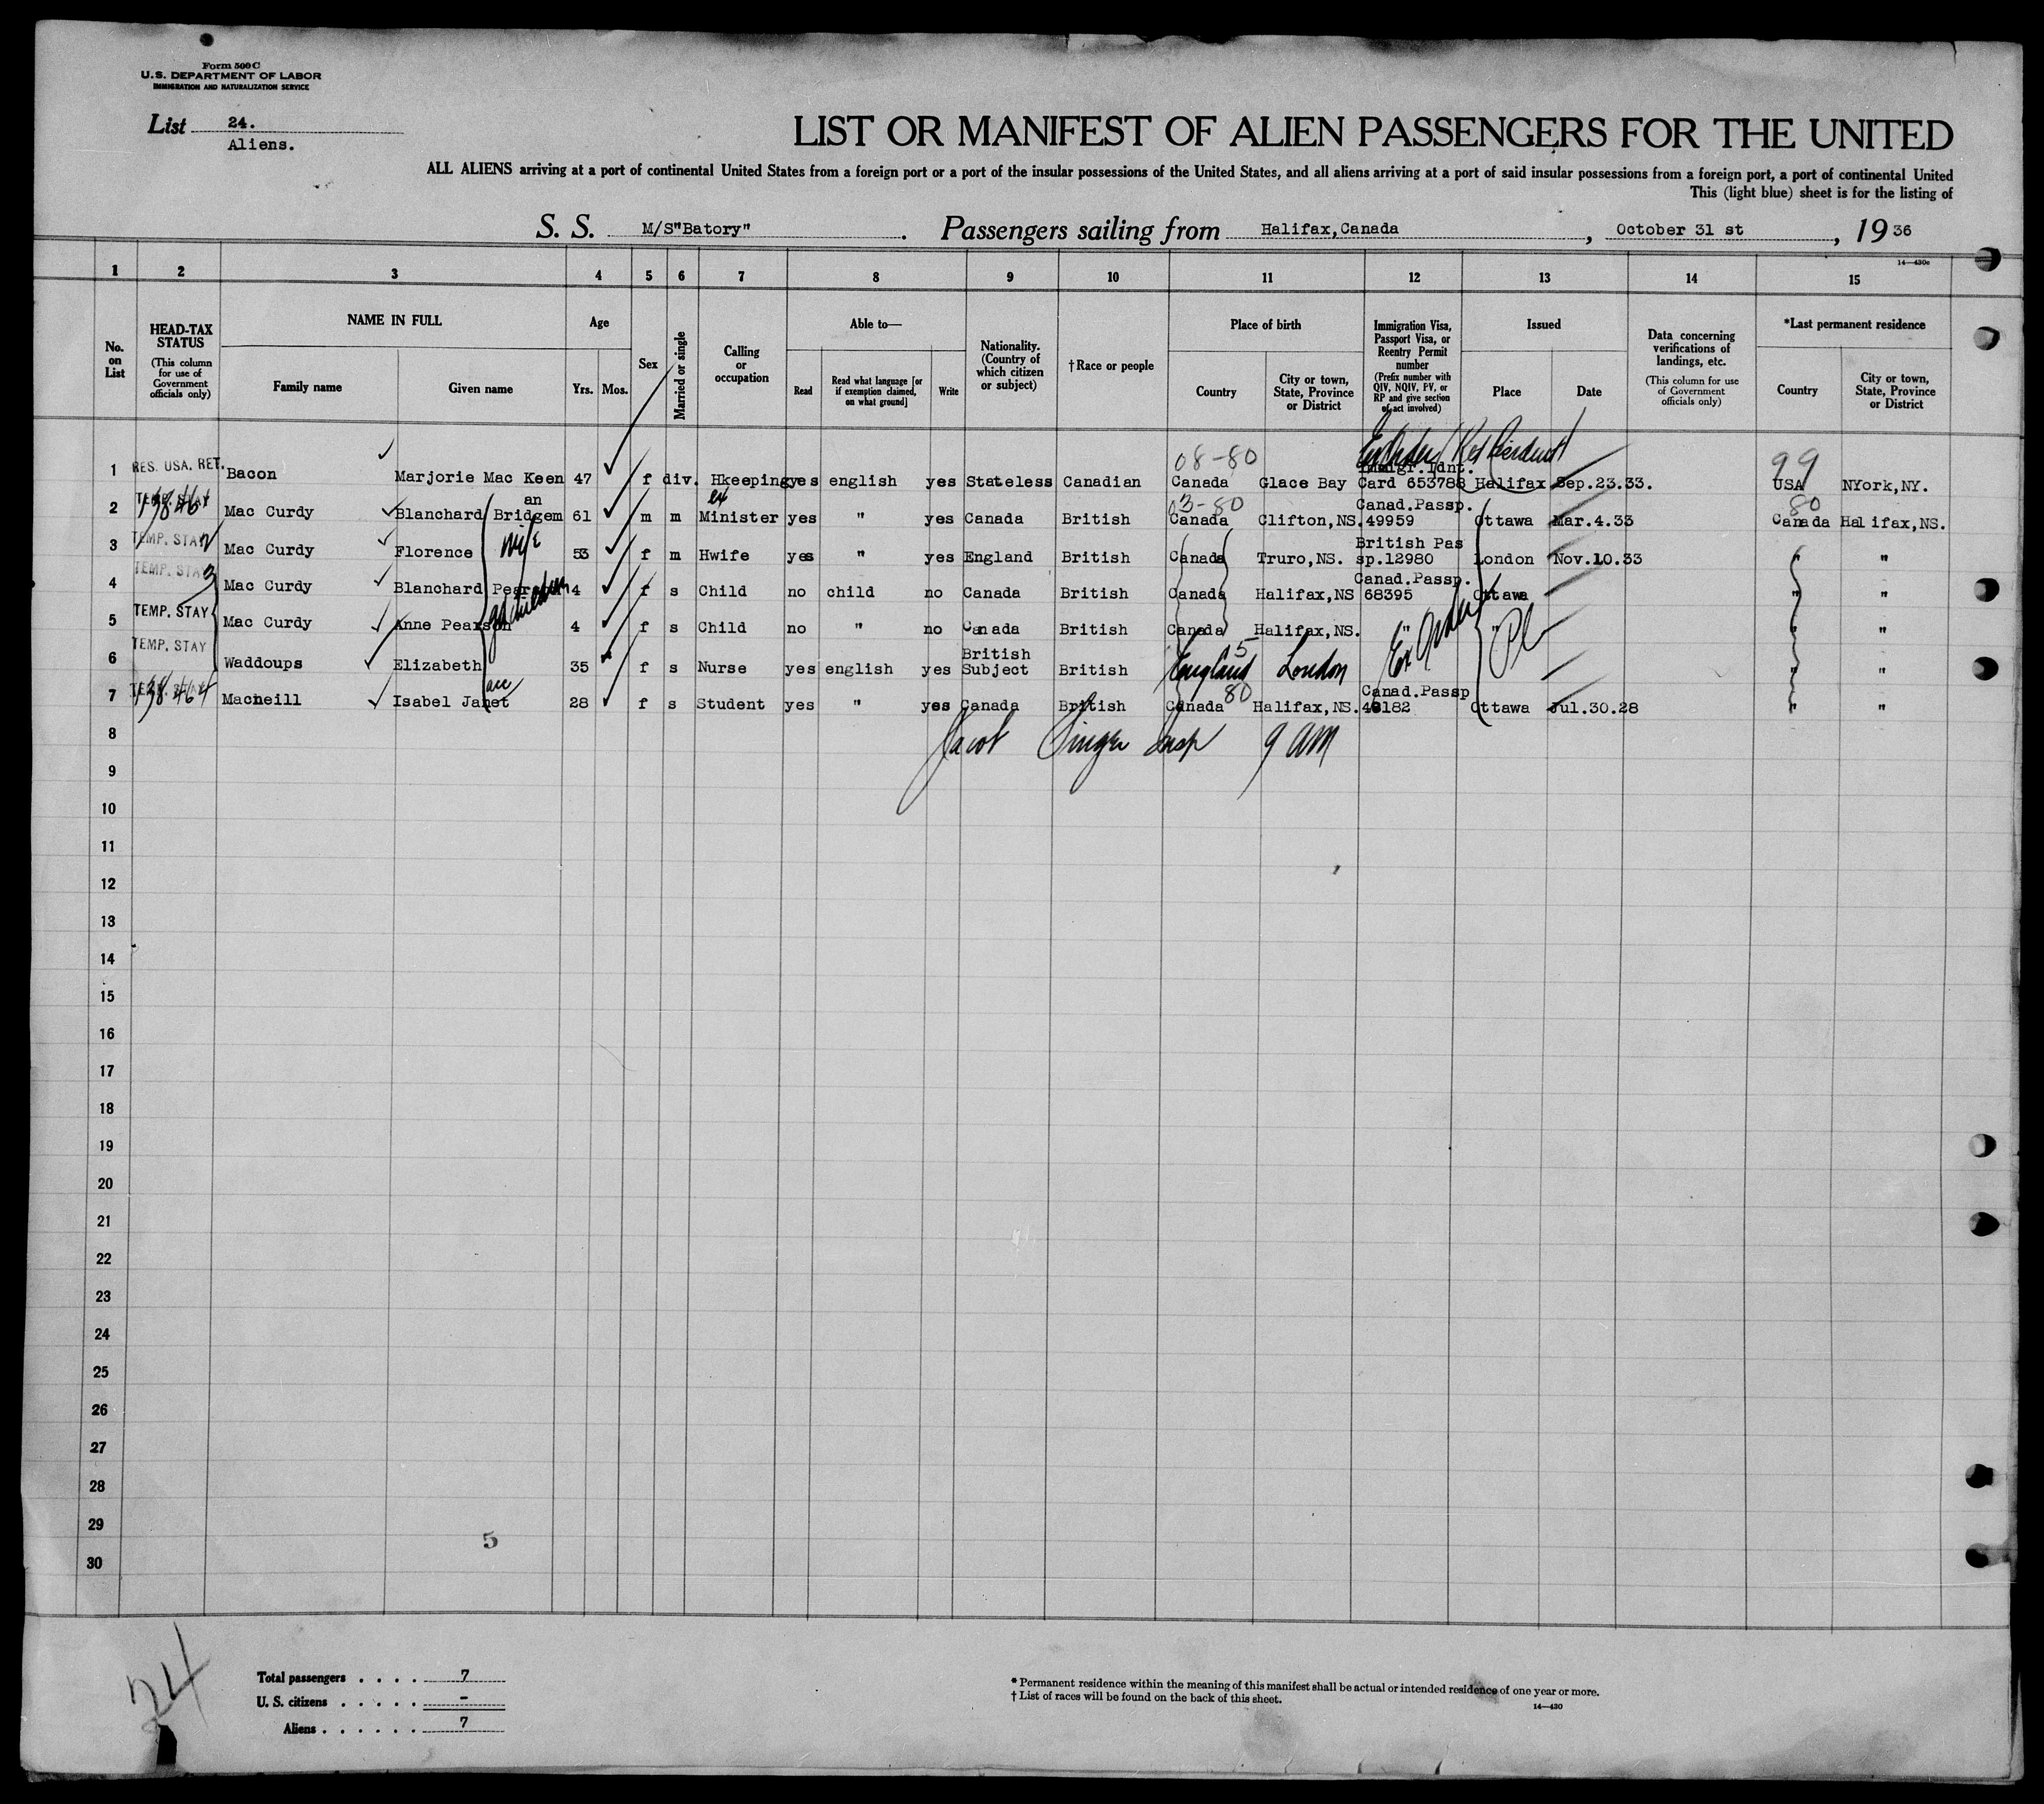 Form 500 C
U.S. DEPARTMENT OF LABOR
IMMIGRATION AND NATURALIZATION SERVICE
List 24.
Aliens.
LIST OR MANIFEST OF ALIEN PASSENGERS FOR THE UNITED
ALL ALIENS arriving at a port of continental United States from a foreign port or a port of the insular possessions of the United States, and all aliens arriving at a port of said insular possessions from a foreign port, a port of continental United
This (light blue) sheet is for the listing of
S. S. M/S"Batory". Passengers sailing from Halifax,Canada, October 31 st, 19 36
14—430c
1 2 3 4 5 6 7 8 9 10 11 12 13 14 15
No. on List
HEAD-TAX STATUS
(This column for use of Government officials only)
NAME IN FULL
Family name
Given name
Age
Yrs. Mos.
Sex
Married or single
Calling or occupation
Able to—
Read
Read what language [or if exemption claimed, on what ground]
Write
Nationality. (Country of which citizen or subject)
†Race or people
Place of birth
Country
City or town, State, Province or District
Immigration Visa, Passport Visa, or Reentry Permit number
(Prefix number with QIV, NQIV, PV, or RP and give section of act involved)
Issued
Place
Date
Data concerning verifications of landings, etc.
(This column for use of Government officials only)
*Last permanent residence
Country
City or town, State, Province or District
08-80 99
1 RES. USA. RET. Bacon Marjorie Mac Keen 47 f div. Hkeeping yes english yes Stateless Canadian Canada Glace Bay Immigr.Idnt. Card 653788 Halifax Sep.23.33. USA NYork,NY.
an ex 03-80 80
2 TEMP. STAY Mac Curdy Blanchard Bridgem 61 m m Minister yes " yes Canada British Canada Clifton,NS. Canad.Passp. 49959 Ottawa Mar.4.33 Canada Halifax,NS.
3 TEMP. STAY Mac Curdy Florence wife 53 f m Hwife yes " yes England British Canada Truro,NS. British Pas sp.12980 London Nov.10.33 " "
4 TEMP. STAY Mac Curdy Blanchard Pearson 4 f s Child no child no Canada British Canada Halifax,NS Canad.Passp. 68395 Ottawa " "
5 TEMP. STAY Mac Curdy Anne Pearson 4 f s Child no " no Canada British Canada Halifax,NS. " " " "
6 TEMP. STAY Waddoups Elizabeth 35 f s Nurse yes english yes British Subject British England 5 London Ex Order " "
7 TEMP. STAY Macneill Isabel Janet 28 f s Student yes " yes Canada British Canada 80 Halifax,NS. Canad.Passp 48182 Ottawa Jul.30.28 " "
8
Jacob Singer Insp 9 AM
9
10
11
12
13
14
15
16
17
18
19
20
21
22
23
24
25
26
27
28
29
5
30
24
Total passengers . . . . 7
U. S. citizens . . . . . -
Aliens . . . . . . 7
* Permanent residence within the meaning of this manifest shall be actual or intended residence of one year or more.
† List of races will be found on the back of this sheet.
14—430